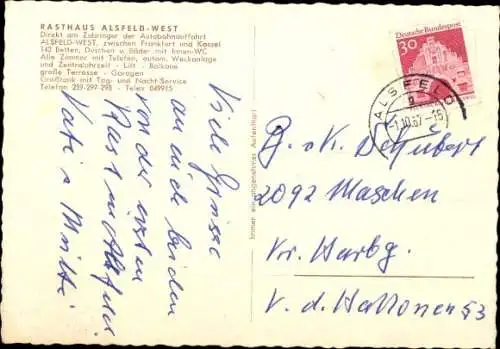 RASTHAUS ALSFELD-WEST
Direkt am Zubringer der Autobahnausfahrt
ALSFELD-WEST, zwischen Frankfurt und Kassel
142 Betten, Duschen u. Bäder mit Innen-WC
Alle Zimmer mit Telefon, autom. Weckanlage
und Zentraluhrzeit - Lift - Balkone
große Terrasse - Garagen
Großtank mit Tag- und Nacht-Service
Telefon 219-297-298 - Telex 049915
Viele Grüsse
an euch beiden
von der ersten
Rast in Alsfeld
Vati u. Mutti
Immer ein angenehmer Aufenthalt
Deutsche Bundespost
30
ALSFELD
-1.10.67-15
G. u. K. Schubert
2092 Maschen
Kr. Harbg.
V. d. Hallonen 53